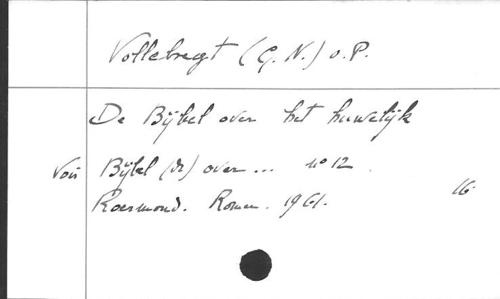 Vollebregt (G. N.) o.P.
De Bijbel over het huwelijk
Voir Bijbel (De) over ... n° 12.
Roermond. Romen. 1961. 16